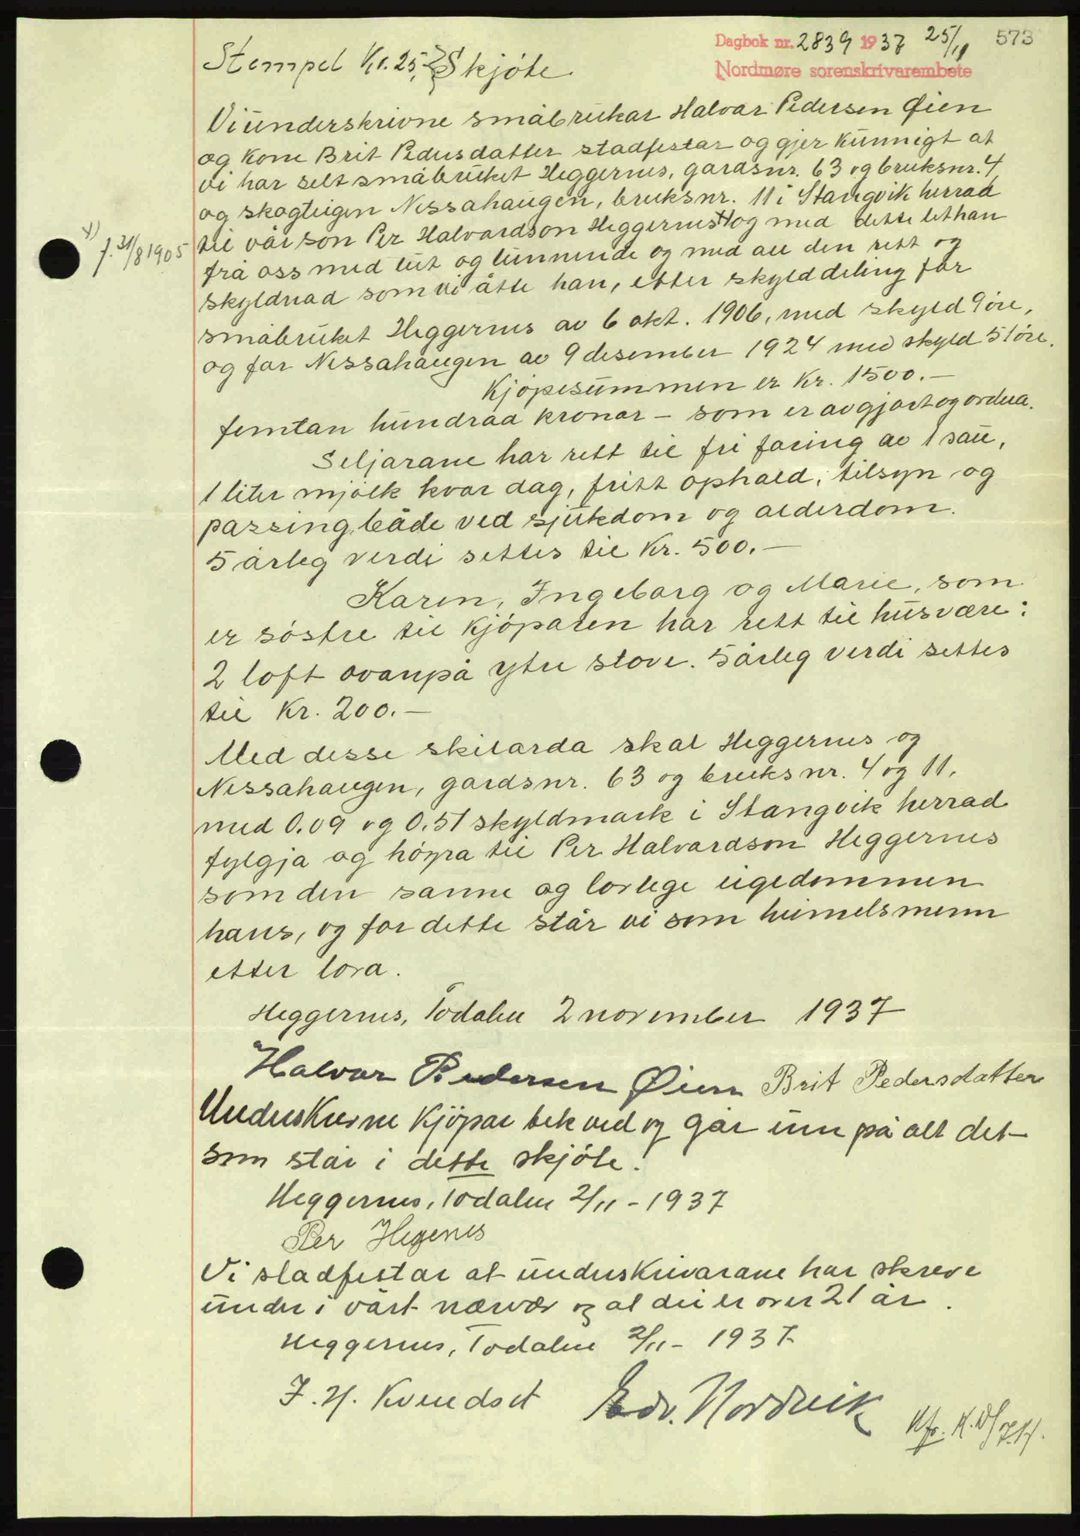 Dagbok nr. 2839 1937 25/11 573
Nordmøre sorenskrivarembete
Stempel Kr. 25,- Skjöte
Vi underskrivne småbrukar Halvar Pedersen Øien
og kone Brit Pedersdatter stadfestar og gjer kunnigt at
vi har selt småbruket Heggernes, gardsnr. 63 og bruksnr. 4,
og skogteigen Nessahaugen, bruksnr. 11 i Stangvik herrad
til vår son Per Halvardson Heggernes x) og med dette let han
x) f. 31/8 1905
frå oss med lut og lunnende og med all den rett og
skyldnad som vi åtte han, etter skylddeling for
småbruket Heggernes av 6 okt. 1906, med skyld 9 öre,
og for Nessahaugen av 9 desember 1924 med skyld 51 öre.
Kjöpesummen er Kr. 1500.-
femtan hundraa kronor - som er avgjort og ordna.
Seljarane har rett til fri foring av 1 sau,
1 liter mjölk kvar dag, fritt ophald, tilsyn og
passing både ved sjukdom og alderdom.
5 årleg verdi settes til Kr. 500.-
Karen, Ingeborg og Marie, som
er söstre til kjöparen har rett til husvære:
2 loft ovanpå ytre stove. 5 årleg verdi settes
til Kr. 200.-
Med desse skilorda skal Heggernes og
Nessahaugen, gardsnr. 63 og bruksnr. 4 og 11,
med 0.09 og 0.51 skyldmark i Stangvik herrad
fylgja og höyra til Per Halvardson Heggernes
som den sanne og lovlege eigedommen
hans, og for dette står vi som heimelsmenn
etter lova.
Heggernes, Todalen 2 november 1937
Halvar Pedersen Øien Brit Pedersdatter
Underskrivne kjöpar tek ved og går inn på alt det
som står i dette skjöte.
Heggernes, Todalen 2/11 - 1937
Per Hegenes
Vi stadfestar at underskrivarane har skreve
under i vårt nærvær og at dei er over 21 år.
Heggernes, Todalen 2/11 - 1937
J. H. Kvendset Edv. Nordvik